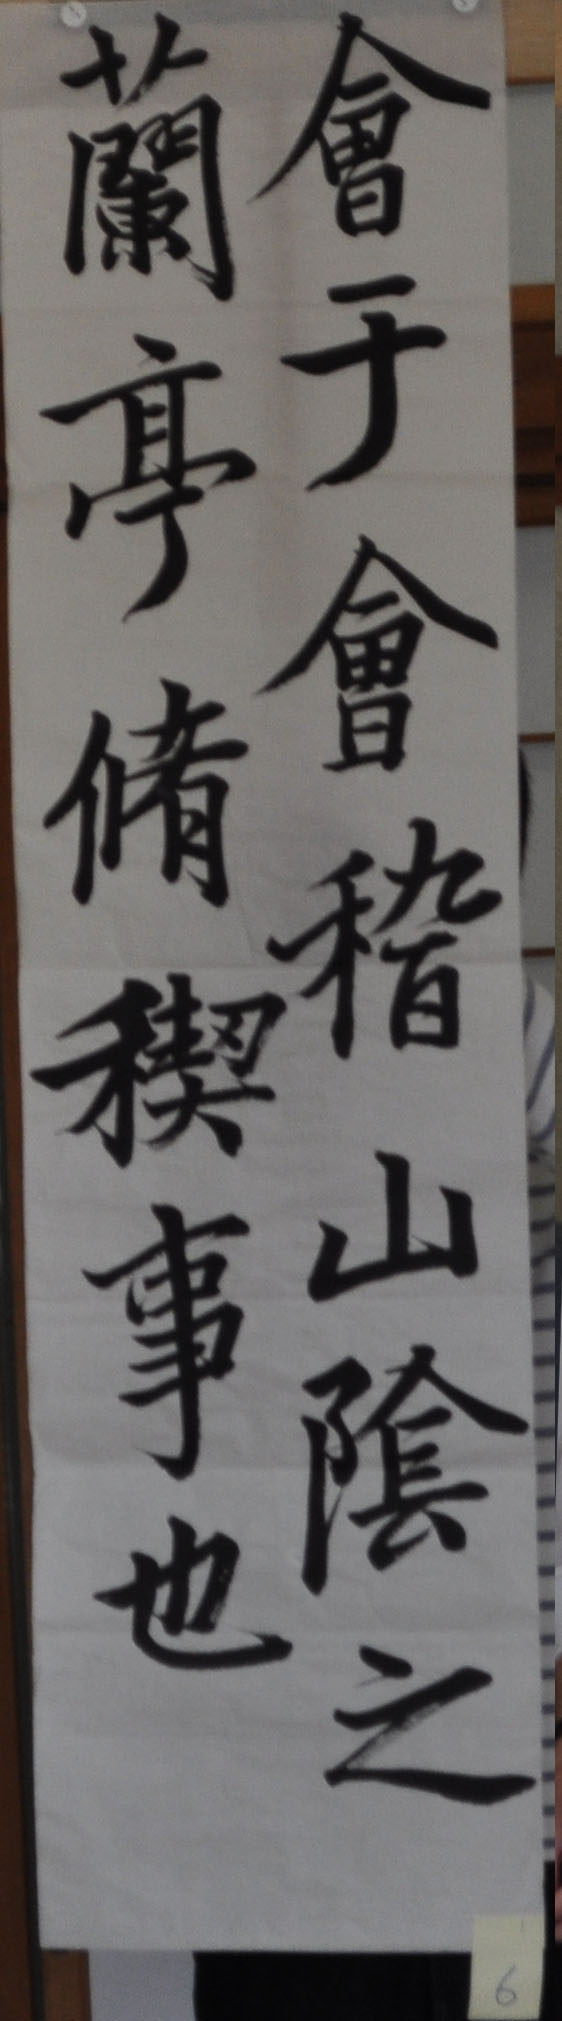 會于會稽山陰之
蘭亭脩稧事也
6